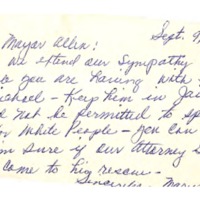 Sept. 9,
Mayor Allen:
We extend our sympathy
you are having with
ichael - Keep him in Jai
d not be permitted to sp
or White People - you can
im sure if our Attorney
come to his rescue -
Sincerely,